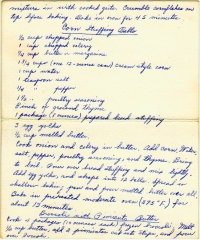 mixture in with cooled grits. Crumble cornflakes on
top before baking. Bake in oven for 45 minutes.
Corn Stuffing Balls
½ cup chopped onion
1 cup chopped celery
¼ cup butter or margarine
1 ¼ cup (one 12-ounce can) cream style corn
1 cup water
1 teaspoon salt
¼ " pepper
1 ½ " poultry seasoning
Pinch of ground thyme
1 package (8 ounces) prepared bread stuffing
3 egg yolks
½ cup melted butter.
Cook onion and celery in butter. Add corn, water,
salt, pepper, poultry seasoning, and thyme. Bring
to boil. Pour over bread stuffing and mix lightly,
add egg yolks, and shape into 10 balls. Spread in
shallow baking pan and pour melted butter over all.
Bake in preheated moderate oven (375° F.) for
about 15 minutes.
Broccoli with Pimiento Butter
Cook 2 packages (10 ounces each) frozen broccoli. Melt
½ cup butter, add 2 pimientos cut into strips, and pour
over broccoli.